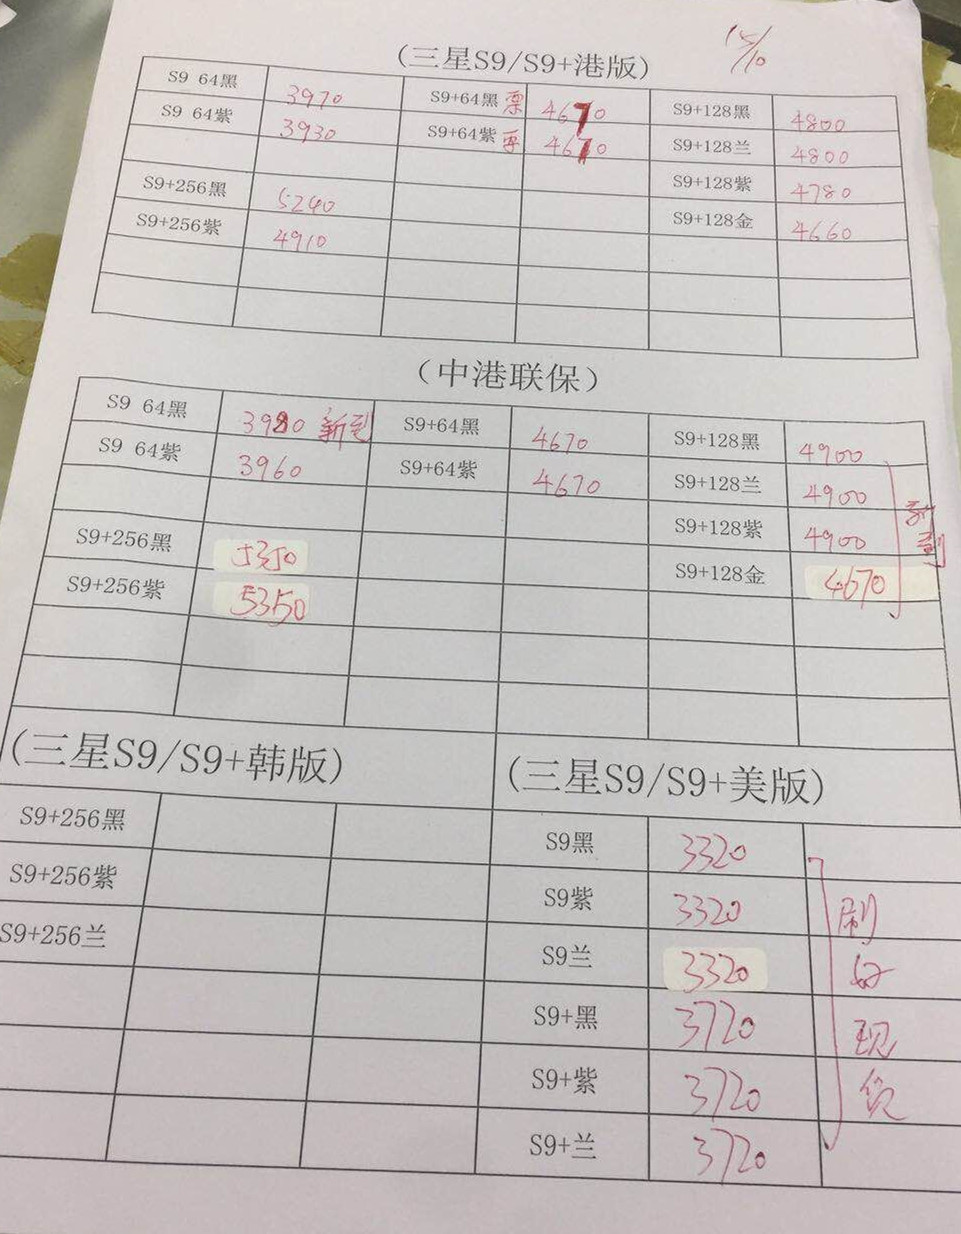 15/10
(三星S9/S9+港版)
S9 64黑 3970 S9+64黑 4670 S9+128黑 4800
S9 64紫 3930 S9+64紫 4670 S9+128兰 4800
S9+128紫 4780
S9+256黑 5240 S9+128金 4660
S9+256紫 4910
(中港联保)
S9 64黑 3980 新到 S9+64黑 4670 S9+128黑 4900
S9 64紫 3960 S9+64紫 4670 S9+128兰 4900
S9+128紫 4900 新到
S9+256黑 5350 S9+128金 4670
S9+256紫 5350
(三星S9/S9+韩版) (三星S9/S9+美版)
S9+256黑 S9黑 3320
S9+256紫 S9紫 3320 刷
S9+256兰 S9兰 3320 好
S9+黑 3720 现
S9+紫 3720 货
S9+兰 3720